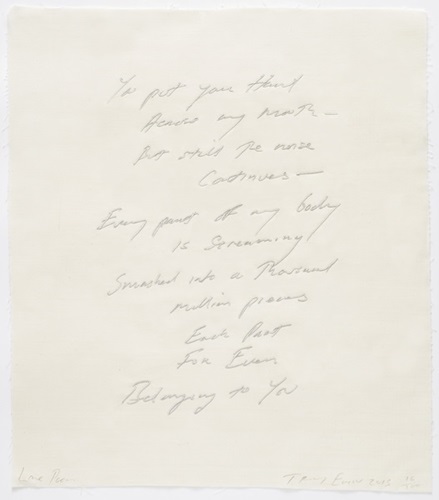 You put your Hand
Across my mouth —
But still the noise
Continues —
Every part of my body
is Screaming
Smashed into a Thousand
million pieces
Each Part
For Ever
Belonging to You
Love Poem Tracey Emin